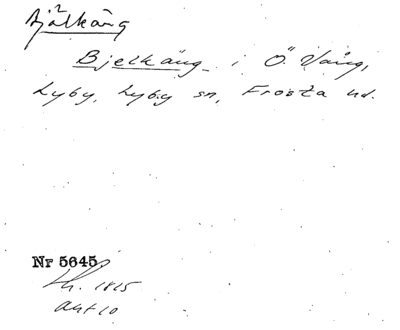 Bjälkäng
Bjelkäng i Ö. Vång,
Lyby, Lyby sn, Frosta hd.
Nr 5645.
Lh. 1815
akt 10